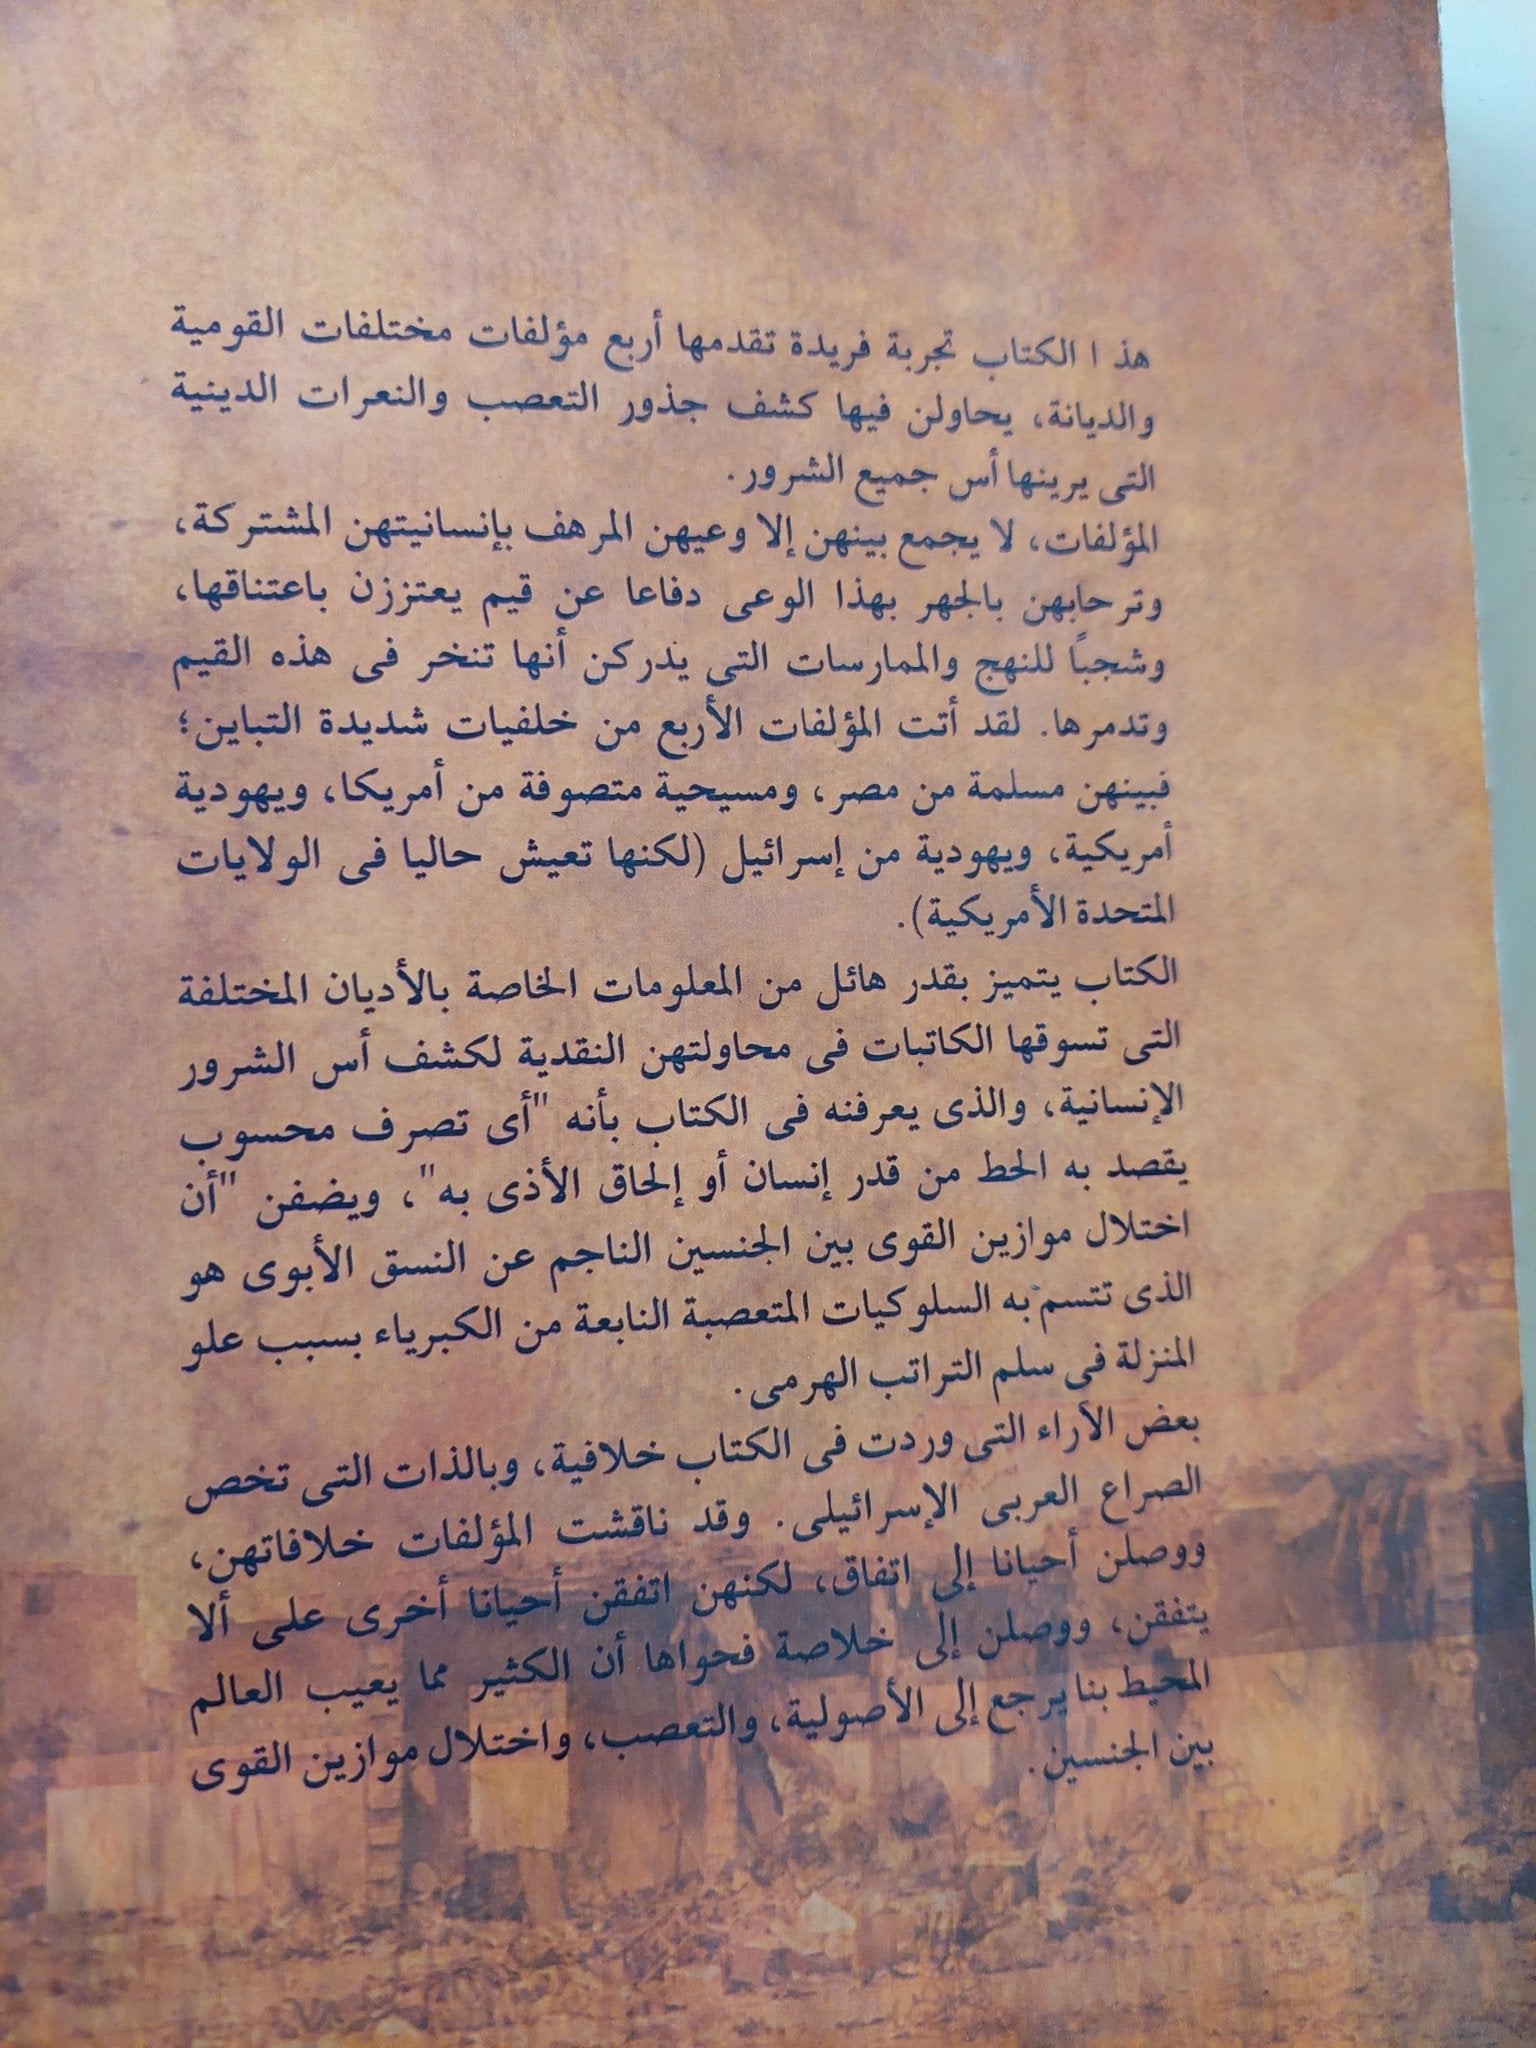 هذا الكتاب تجربة فريدة تقدمها أربع مؤلفات مختلفات القومية
والديانة، يحاولن فيها كشف جذور التعصب والنعرات الدينية
التى يرينها أس جميع الشرور.
المؤلفات، لا يجمع بينهن إلا وعيهن المرهف بإنسانيتهن المشتركة،
وترحابهن بالجهر بهذا الوعى دفاعا عن قيم يعتززن باعتناقها،
وشجباً للنهج والممارسات التى يدركن أنها تنخر فى هذه القيم
وتدمرها. لقد أتت المؤلفات الأربع من خلفيات شديدة التباين؛
فبينهن مسلمة من مصر، ومسيحية متصوفة من أمريكا، ويهودية
أمريكية، ويهودية من إسرائيل (لكنها تعيش حاليا فى الولايات
المتحدة الأمريكية).
الكتاب يتميز بقدر هائل من المعلومات الخاصة بالأديان المختلفة
التى تسوقها الكاتبات فى محاولتهن النقدية لكشف أس الشرور
الإنسانية، والذى يعرفنه فى الكتاب بأنه "أى تصرف محسوب
يقصد به الحط من قدر إنسان أو إلحاق الأذى به"، ويضفن "أن
اختلال موازين القوى بين الجنسين الناجم عن النسق الأبوى هو
الذى تتسم به السلوكيات المتعصبة النابعة من الكبرياء بسبب علو
المنزلة فى سلم التراتب الهرمى.
بعض الآراء التى وردت فى الكتاب خلافية، وبالذات التى تخص
الصراع العربى الإسرائيلى. وقد ناقشت المؤلفات خلافاتهن،
ووصلن أحيانا إلى اتفاق، لكنهن اتفقن أحيانا أخرى على ألا
يتفقن، ووصلن إلى خلاصة فحواها أن الكثير مما يعيب العالم
المحيط بنا يرجع إلى الأصولية، والتعصب، واختلال موازين القوى
بين الجنسين.